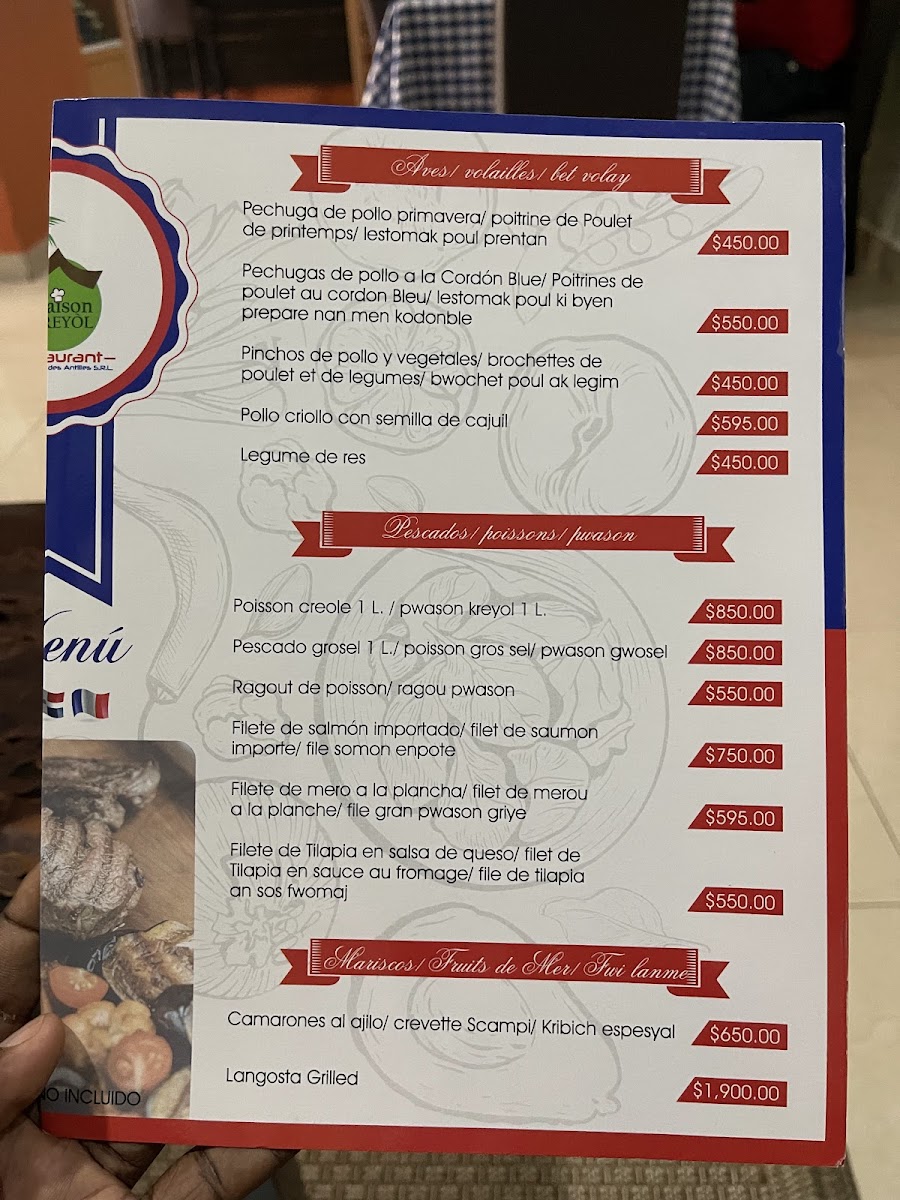 Aves/ volailles/ bet volay
Pechuga de pollo primavera/ poitrine de Poulet
de printemps/ lestomak poul prentan
$450.00
Pechugas de pollo a la Cordón Blue/ Poitrines de
poulet au cordon Bleu/ lestomak poul ki byen
prepare nan men kodonble
$550.00
Pinchos de pollo y vegetales/ brochettes de
poulet et de legumes/ bwochet poul ak legim
$450.00
Pollo criollo con semilla de cajuil
$595.00
Legume de res
$450.00
Pescados/ poissons/ pwason
Poisson creole 1 L. / pwason kreyol 1 L.
$850.00
Pescado grosel 1 L./ poisson gros sel/ pwason gwosel
$850.00
Ragout de poisson/ ragou pwason
$550.00
Filete de salmón importado/ filet de saumon
importe/ file somon enpote
$750.00
Filete de mero a la plancha/ filet de merou
a la planche/ file gran pwason griye
$595.00
Filete de Tilapia en salsa de queso/ filet de
Tilapia en sauce au fromage/ file de tilapia
an sos fwomaj
$550.00
Mariscos/ Fruits de Mer/ Fwi lanme
Camarones al ajilo/ crevette Scampi/ Kribich espesyal
$650.00
Langosta Grilled
$1,900.00
aison
REYÒL
aurant
des Antilles S.R.L.
enú
NO INCLUIDO